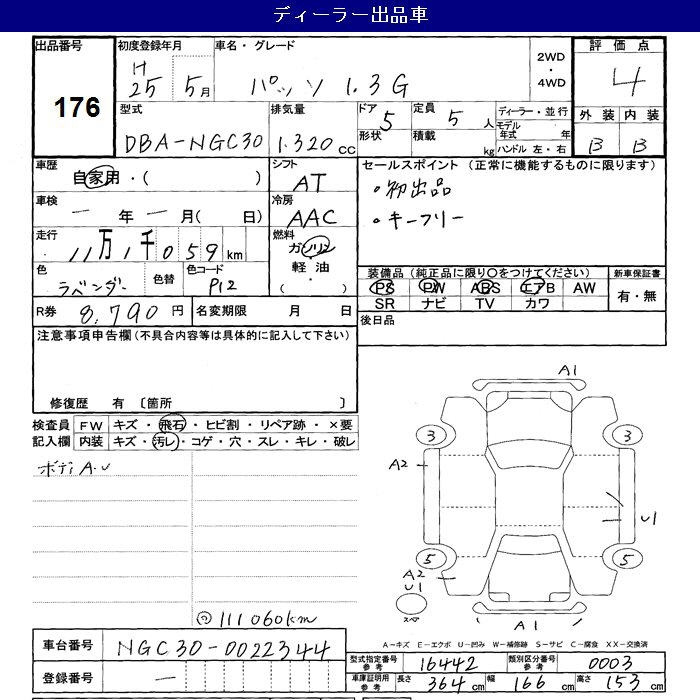 ディーラー出品車
出品番号 初度登録年月 車名・グレード 2WD・4WD 評価点
176 H25 5月 パッソ 1.3G 4
型式 排気量 ドア 5 定員 5人 ディーラー・並行 外装 内装
DBA-NGC30 1.320cc 形状 積載 kg モデル年式 年 ハンドル 左・右 B B
車歴 自家用・( ) シフト AT セールスポイント (正常に機能するものに限ります)
・初出品
車検 ー年ー月( 日) 冷房 AAC ・キーフリー
走行 11万1千059km 燃料 ガソリン
色 ラベンダー 色替 色コード P12 軽油・( )
装備品 (純正品に限り○をつけてください) 新車保証書
PS PW ABS エアB AW 有・無
SR ナビ TV カワ
R券 8,790円 名変期限 月 日 後日品
注意事項申告欄(不具合内容等は具体的に記入して下さい)
修復歴 有 〔箇所 〕
検査員 FW キズ・飛石・ヒビ割・リペア跡・×要
記入欄 内装 キズ・汚レ・コゲ・穴・スレ・キレ・破レ
ボディA.U
A1
3 3
A2
U1
5 5
A2
U1
スペア
A1
◎111060km
A-キズ E-エクボ U-凹み W-補修跡 S-サビ C-腐食 XX-交換済
車台番号 NGC30-0022344
型式指定番号参考 16442 類別区分番号参考 0003
登録番号 ー
車庫証明用参考 長さ 364cm 幅 166cm 高さ 153cm